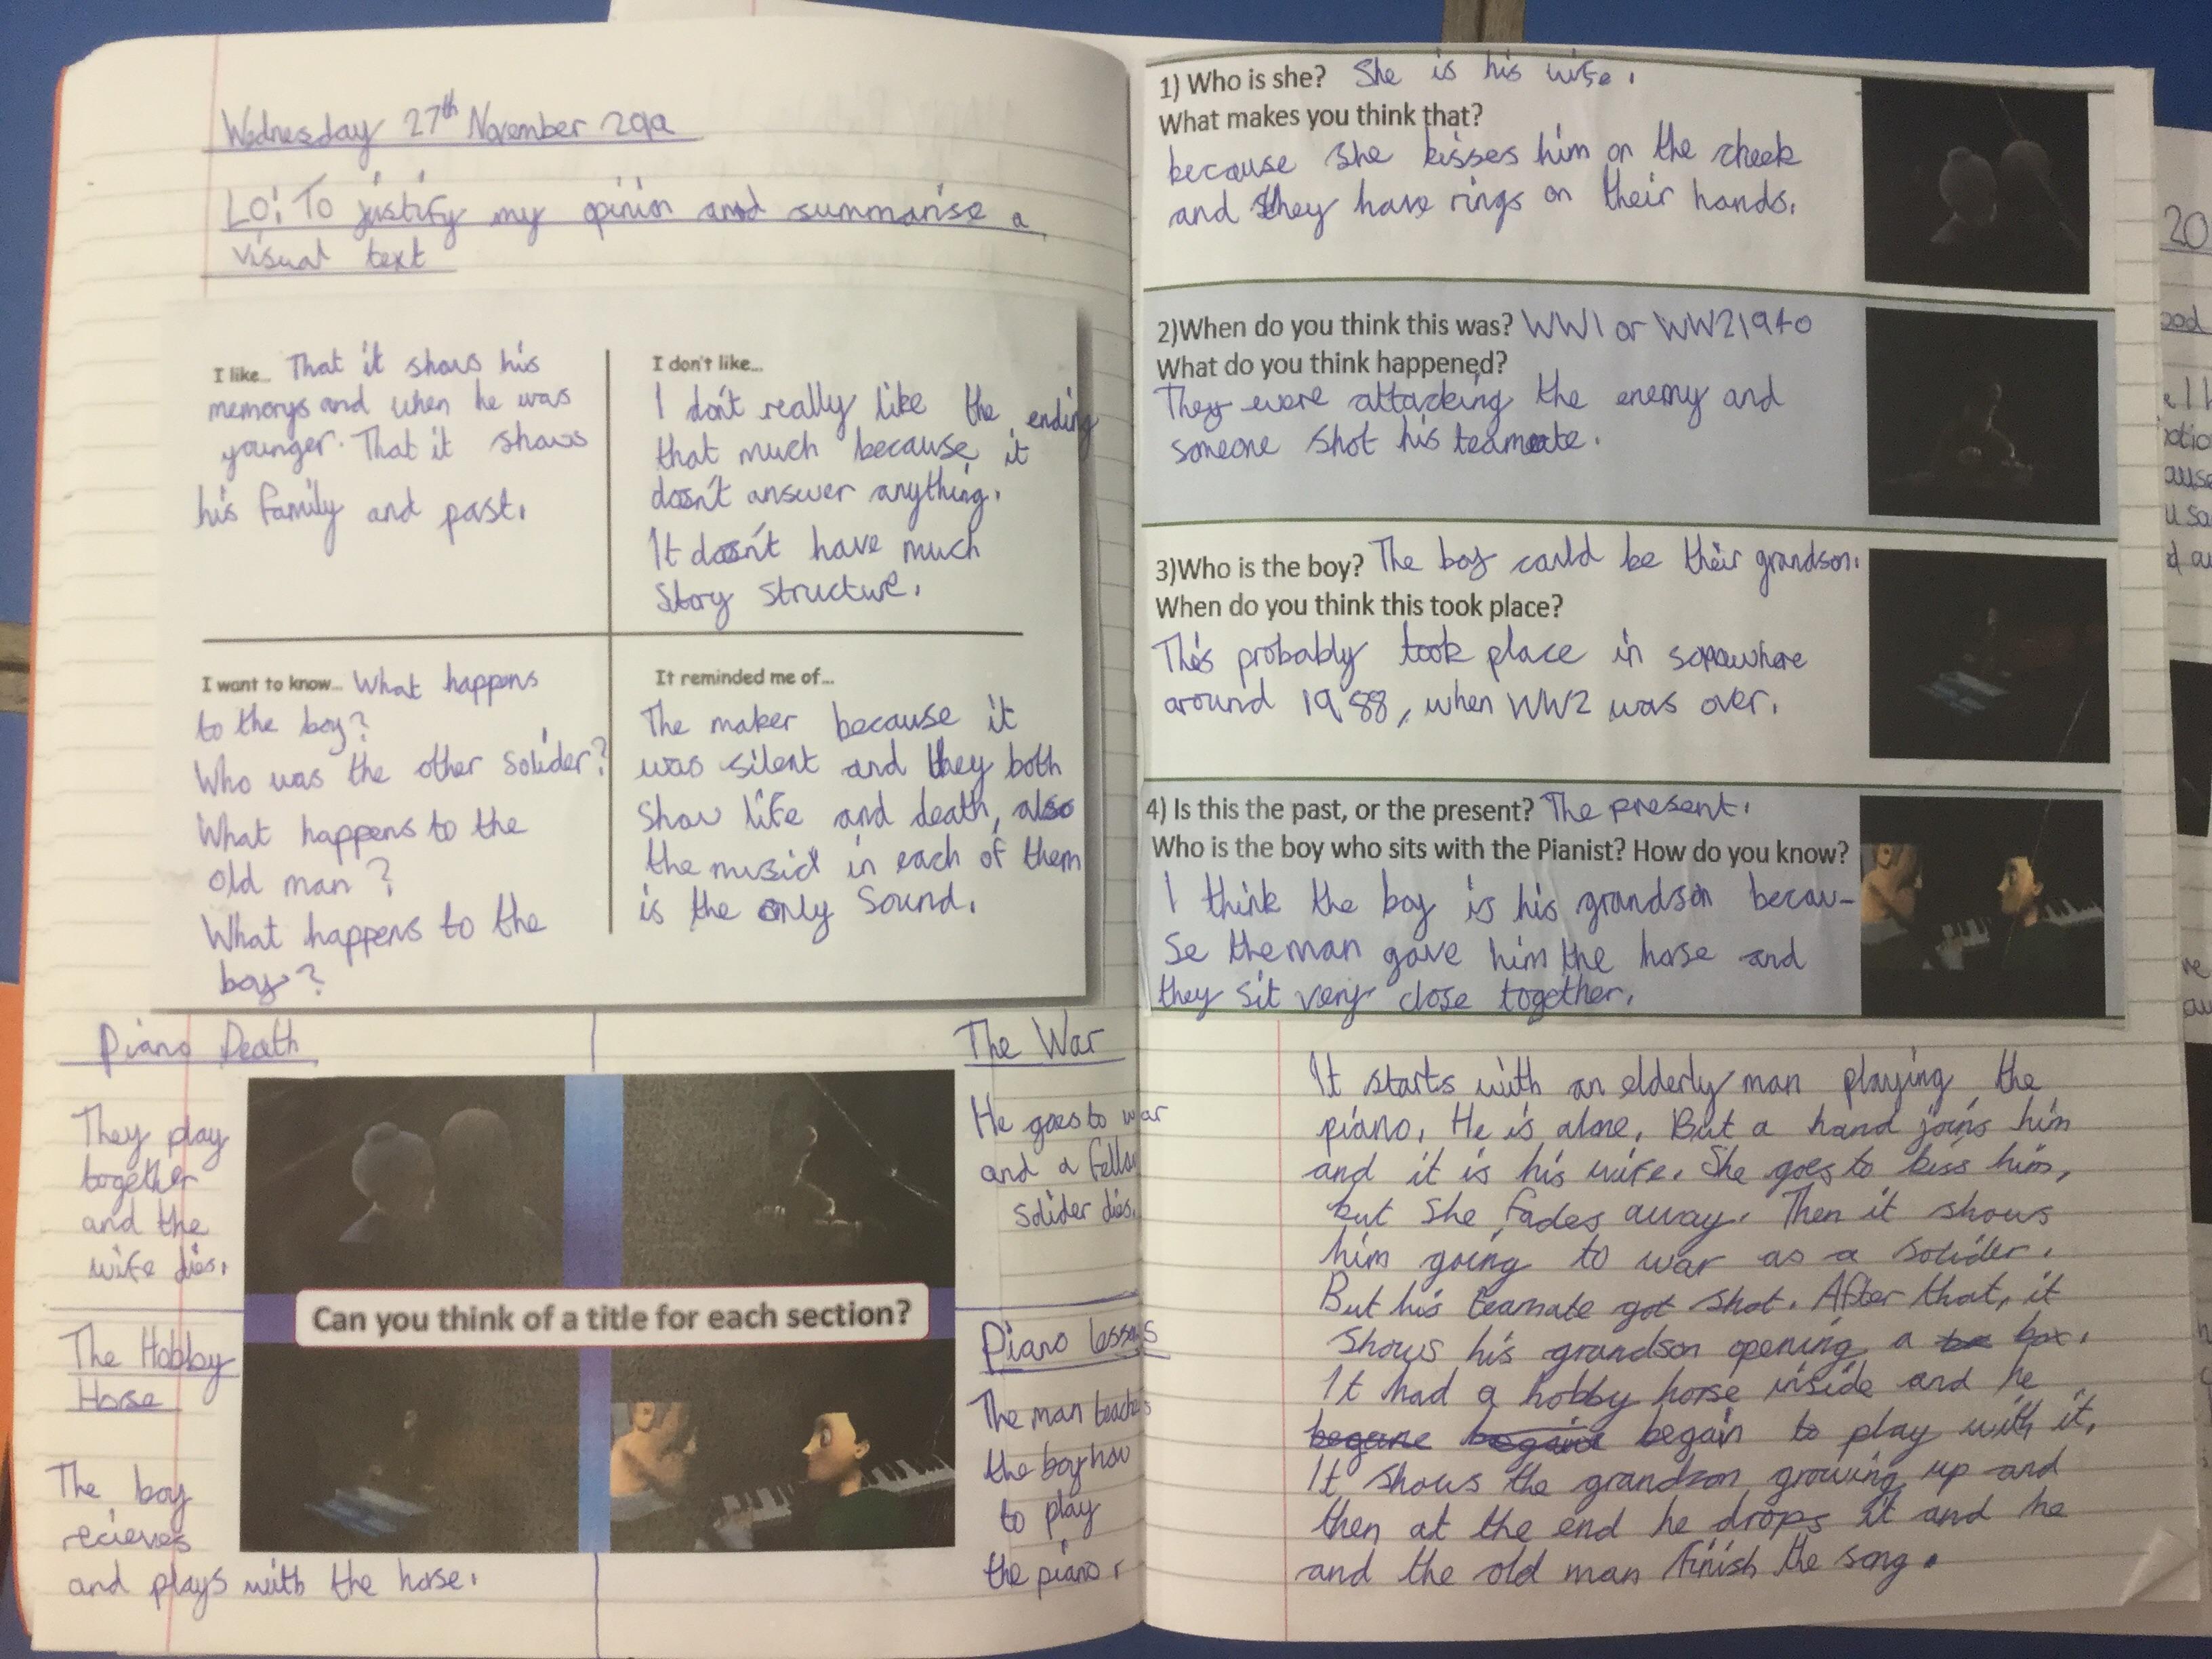 Wednesday 27th November 2019
LO: To justify my opinion and summarise a
visual text
I like... That it shows his
memorys and when he was
younger. That it shows
his family and past.
I don't like...
I don't really like the ending
that much because it
dosn't answer anything.
It dosn't have much
Story structure.
I want to know... What happens
to the boy?
Who was the other solider?
What happens to the
old man?
What happens to the
boy?
It reminded me of...
The maker because it
was silent and they both
show life and death, also
the music in each of them
is the only Sound.
Piano Death
They play
together
and the
wife dies.
The War
He goes to war
and a fellow
solider dies.
Can you think of a title for each section?
The Hobby
Horse
The boy
recieves
and plays with the horse.
Piano lessons
The man teaches
the boy how
to play
the piano.
1) Who is she? She is his wife.
What makes you think that?
because she kisses him on the cheek
and they have rings on their hands.
2)When do you think this was? WW1 or WW2 1940
What do you think happened?
They were attacking the enemy and
someone shot his teamate.
3)Who is the boy? The boy could be their grandson.
When do you think this took place?
This probably took place in somewhere
around 1988, when WW2 was over.
4) Is this the past, or the present? The present.
Who is the boy who sits with the Pianist? How do you know?
I think the boy is his grandson becau-
se the man gave him the horse and
they sit very close together.
It starts with an elderly man playing the
piano. He is alone. But a hand joins him
and it is his wife. She goes to kiss him,
but she fades away. Then it shows
him going to war as a solider.
But his teamate got shot. After that, it
shows his grandson opening a bo box.
It had a hobby horse inside and he
begane begain to play with it.
It shows the grandson growing up and
then at the end he drops it and he
and the old man finish the song.
20